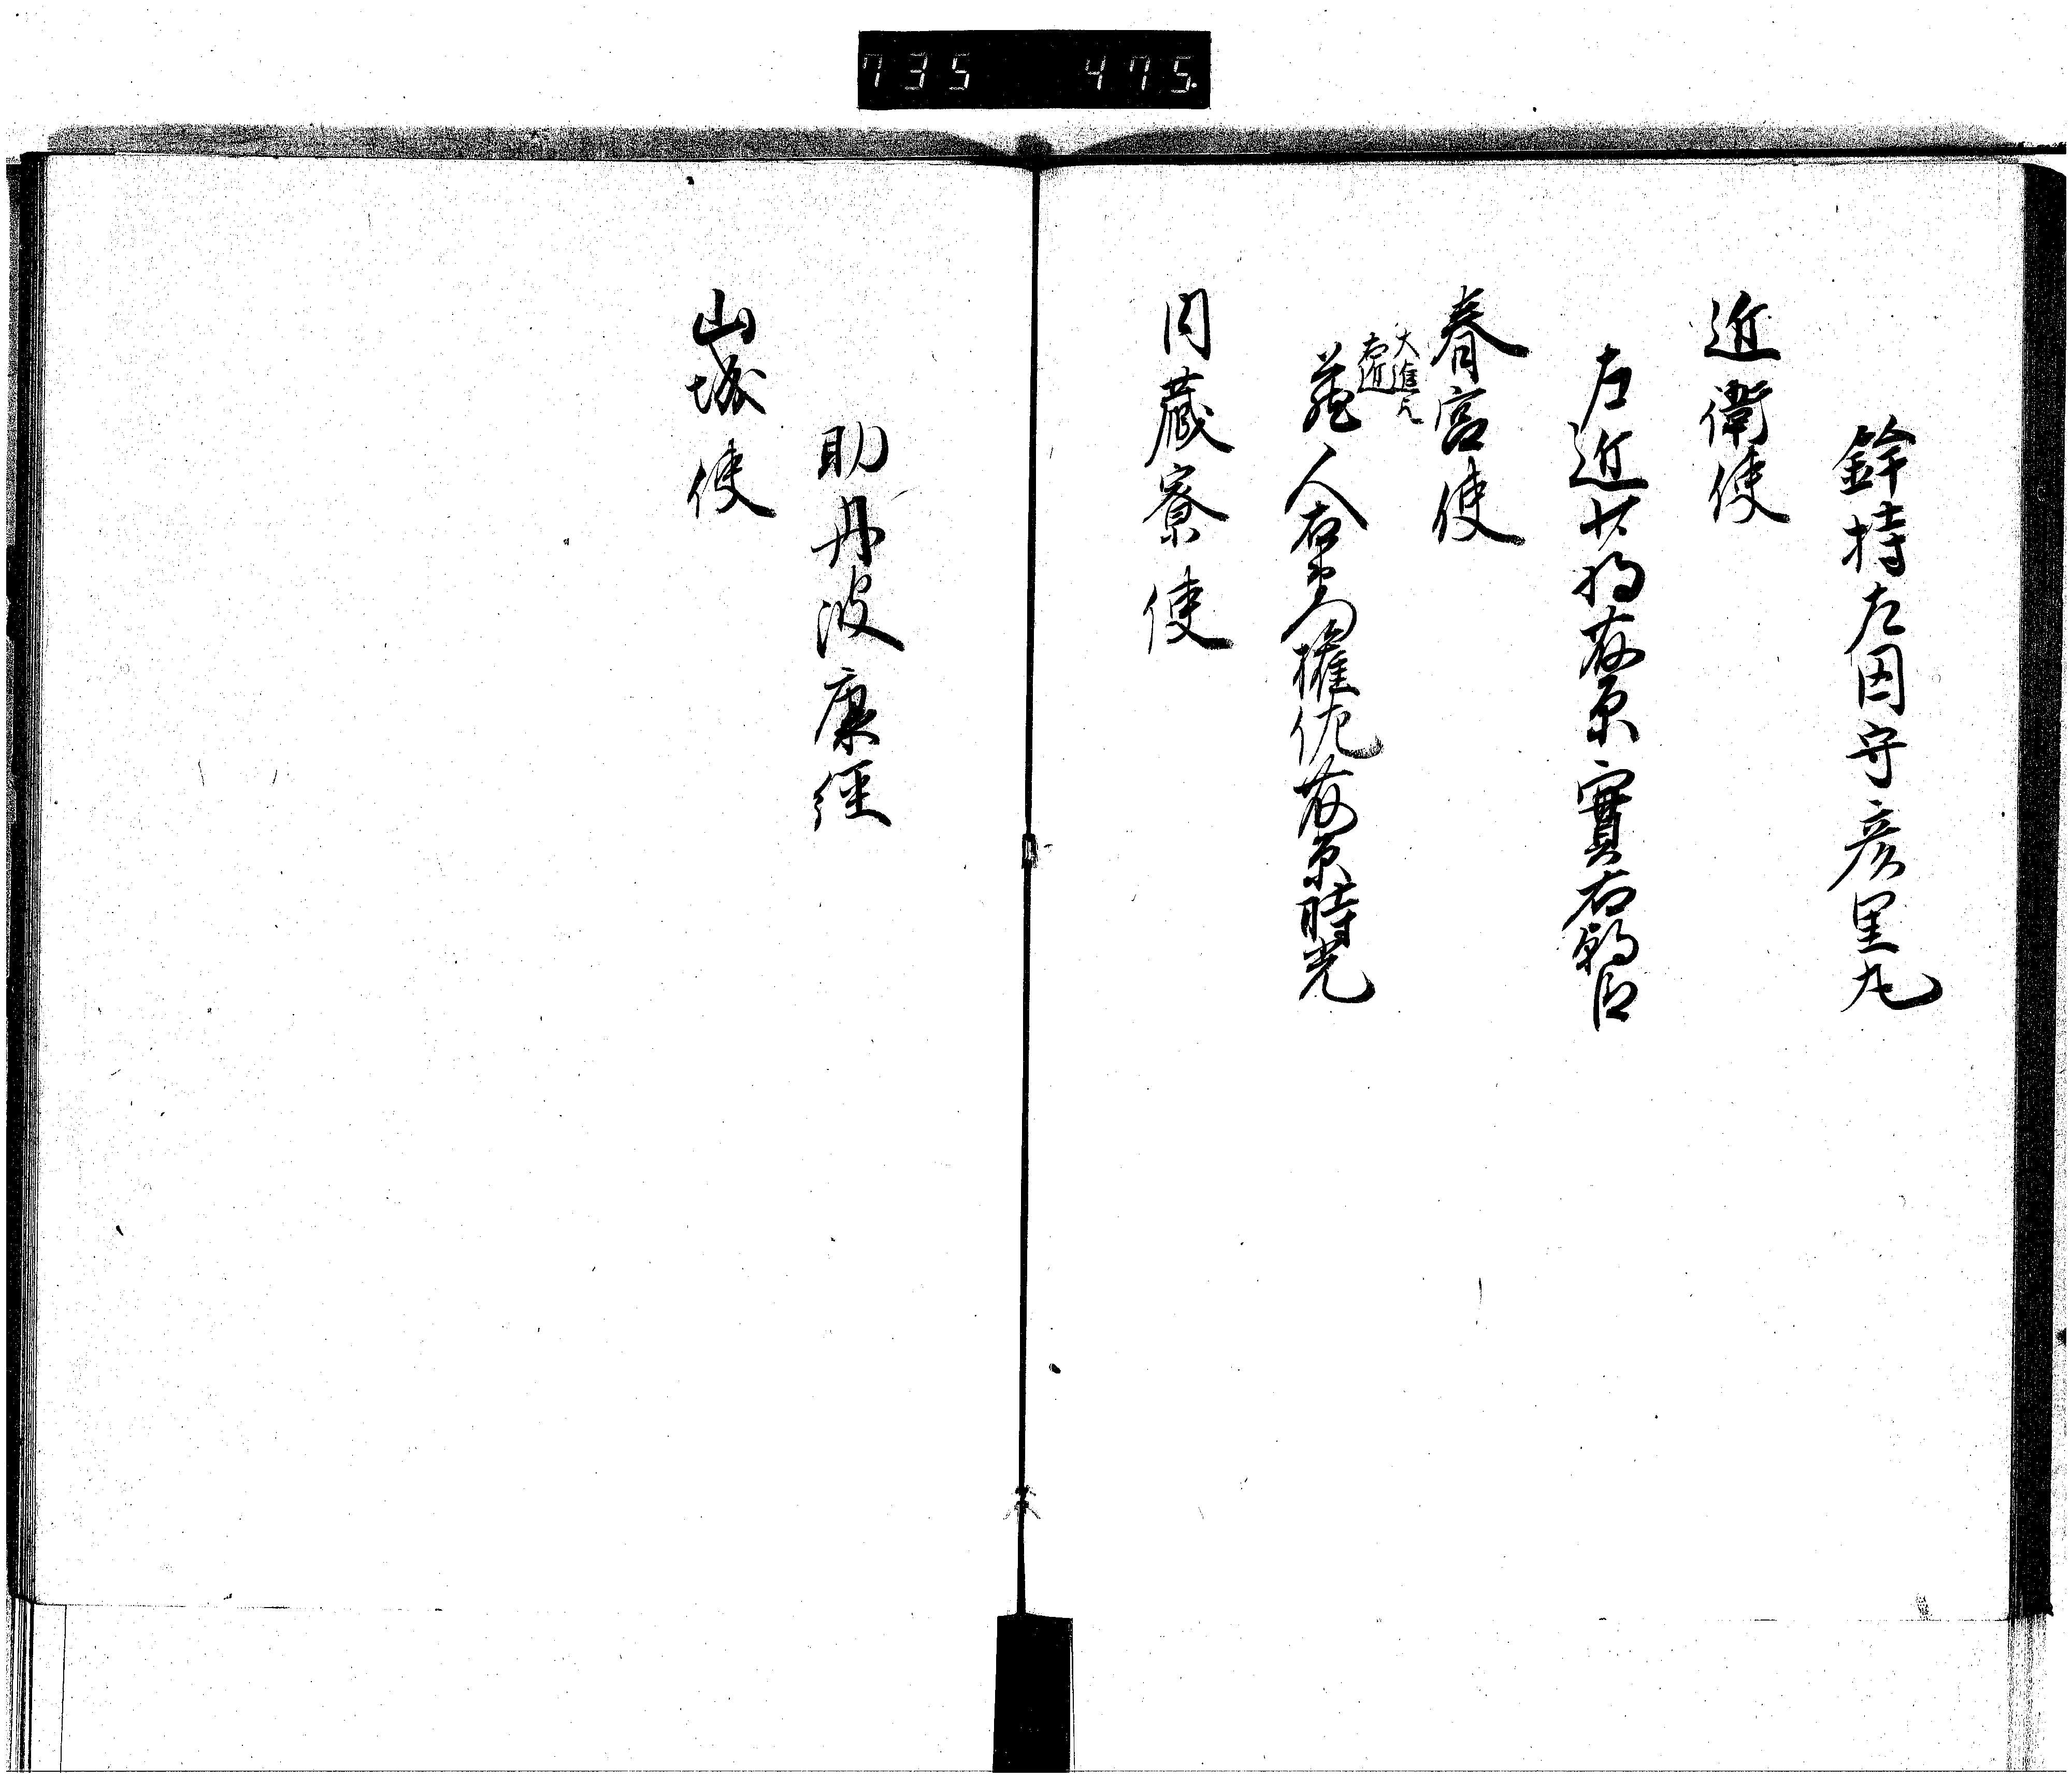 735 475.
鉾持左因守彦里丸
近衛使
左近少将藤原實右朝臣
春宮使
大進
右近
蔵人右衛門権佐藤原時光
内蔵寮使
助丹波康經
山城使